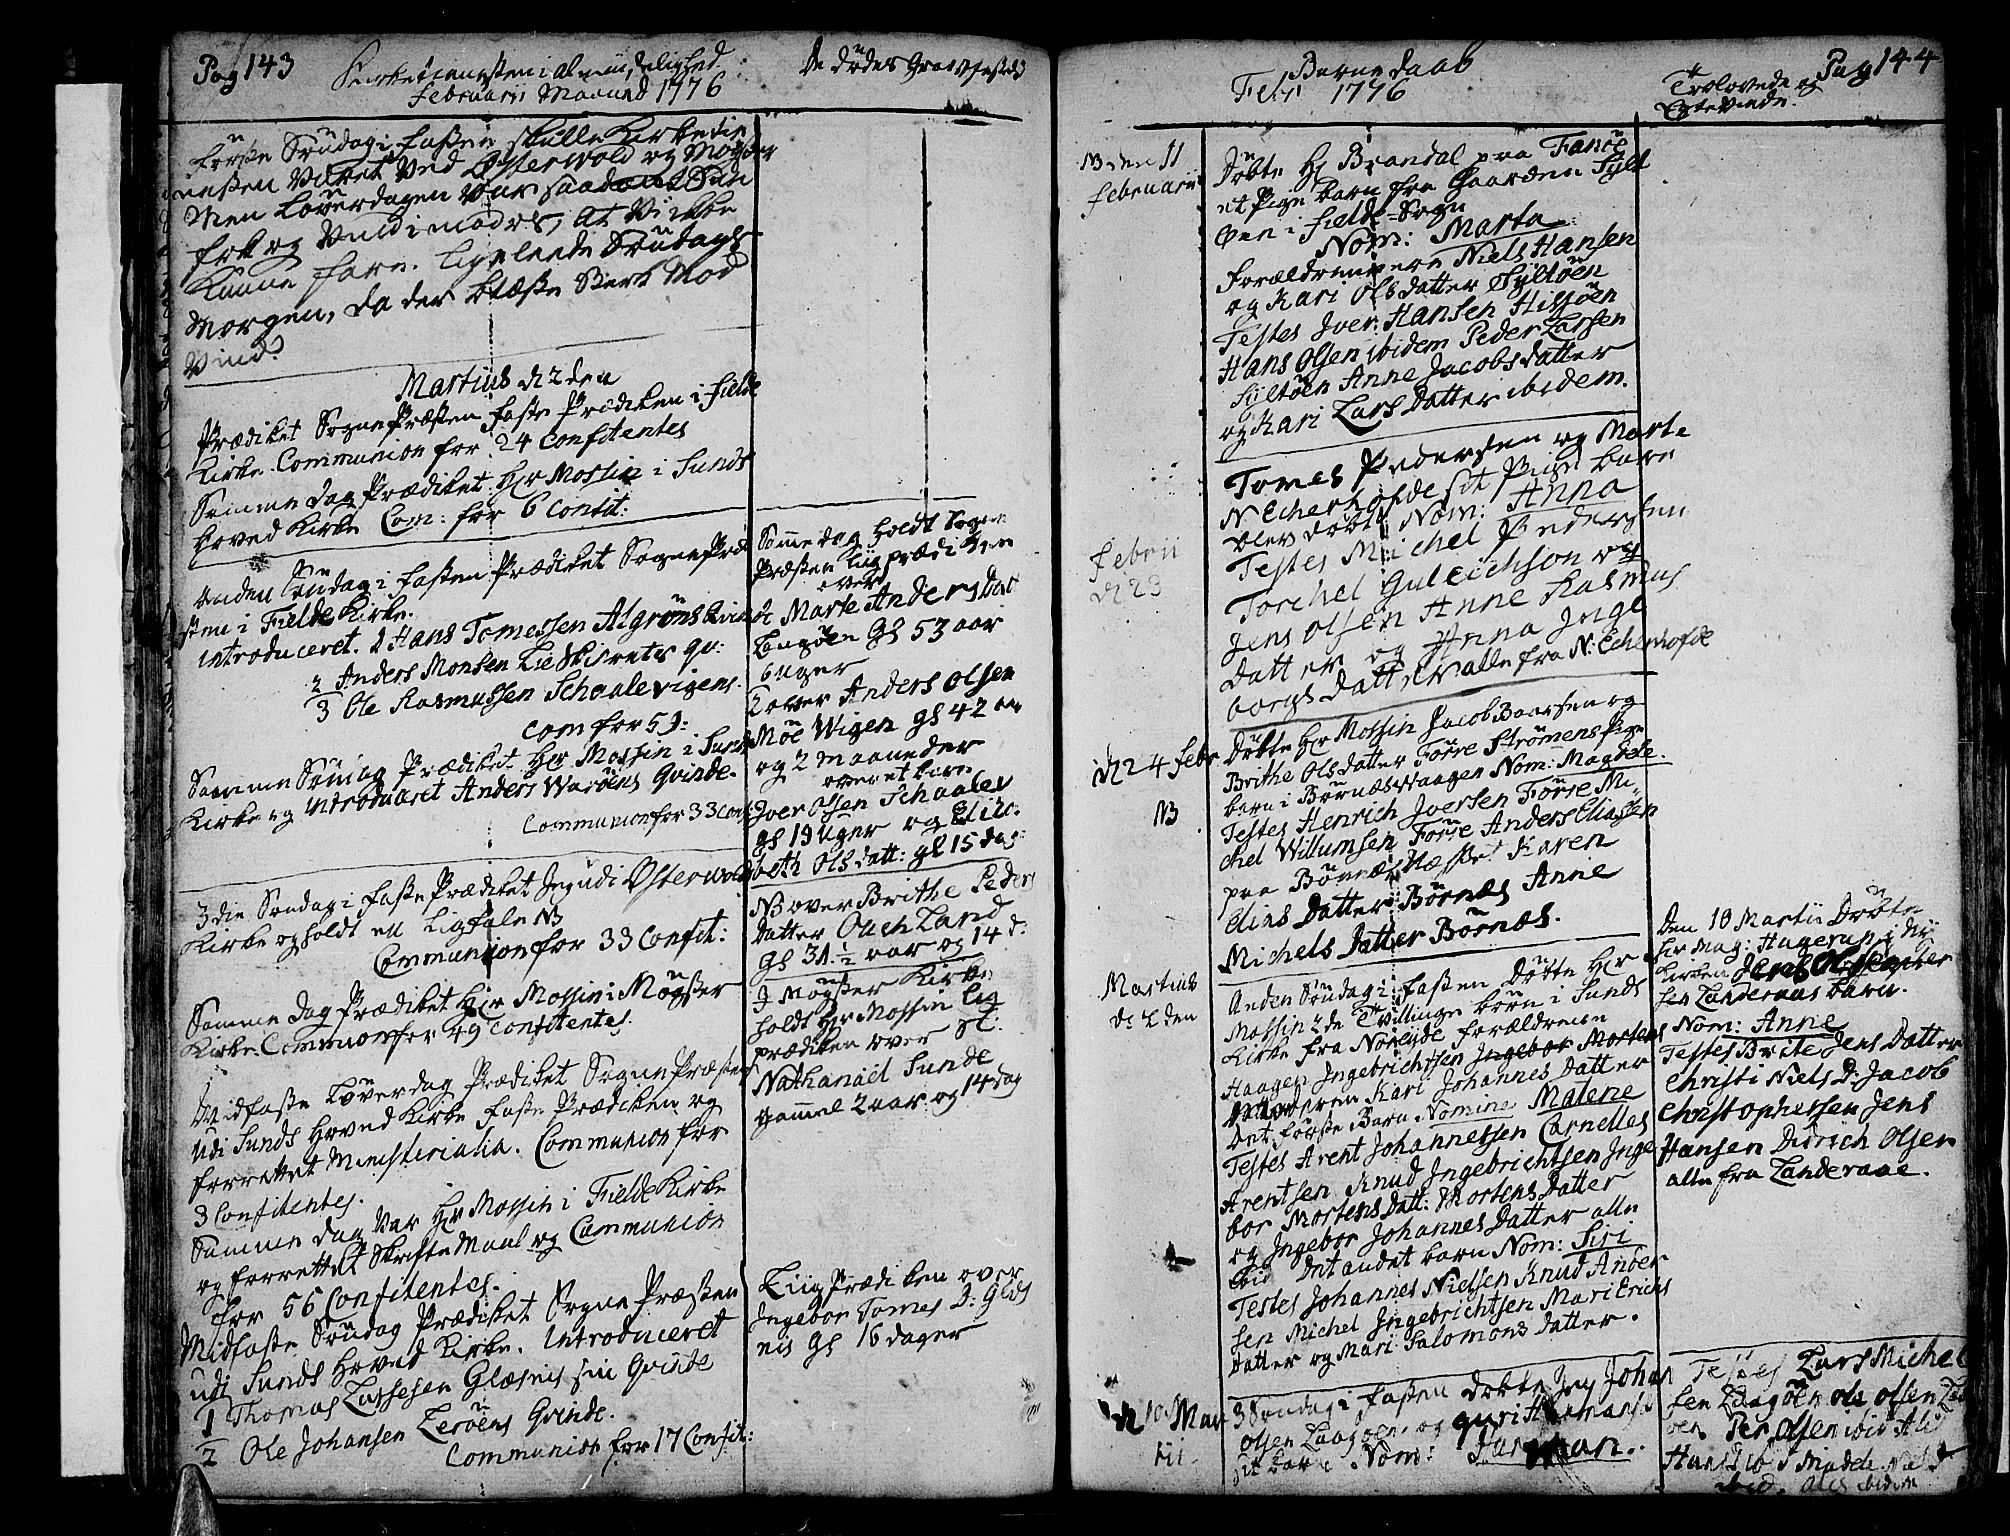 Pag 143
Kirketienesten i almindelighed
Februarii Maaned 1776
De Dødes Gravfested
første Søndag i fasten skulle Kirketie
nesten været ved Østerwold og Møgster
Men Løverdagen var saadant Sun
og Vind i modes, at Vi ikke
kunne fare. Ligeleede Søndags
Morgen, da der blæste Sterk Mod
Vind.
Martius d. 2den
Prædiket Sognepræsten faste Prædiken i Fielde
Kirke. Communion for 24 Confitentes
Samme dag Prædiket Hr Mossin i Sunds
Hoved Kirke Com: for 6 Confit:
Anden Søndag i fasten Prædiket Sognepræ
sten i Fielde Kirke.
introduceret. 1 Hans Tomessen Algrøns Qvinde
2 Anders Monsen Lieskisrets qv:
3 Ole Rasmussen Schaalevigens
Com for 59:
Samme Søndag Prædiket Hr Mossin i Sunds
Kirke og introduceret Anders Warøens Qvinde.
Communion for 33 Conf
3die Søndag i faste Prædiket Jeg udi Østerwold
Kirke og holdt en Ligtale NB
Communion for 33 Confit:
Samme Dag Prædiket Hr Mossin i Møgster
Kirke: Communion for 49 Confitentes.
Midfaste Løverdag Prædiket Sogne Præsten
udi Sunds Hoved Kirke faste Prædiken og
forrettet Ministerialia. Communion for
3 Confitentes.
Samme dag var Hr Mossin i Fielde Kirke
og forrettet Skrifte Maal og Communion
for 56 Confitentes.
Midfaste Søndag Prædiket Sogne Præsten
udi Sunds Hoved Kirke. Introduceret
1 Thomas Lassesen Glæsnis sin Qvinde
2 Ole Johansen Lerøens Qvinde.
Communion for 17 Confit:
Samme dag holdt Sogne
Præsten liigprædiken
over
1 Marte Anders Dat
Langøen gl 53 aar
6 uger
2 over Anders Olsen
Møe Wigen gl 42 aar
og 2 maaneder
over et barn
Iver Olsen Schaalev
gl 19 Uger og Eliza
beth Olsdatt: gl 15 dag
NB over Brithe Peders
Datter Ouch Land
gl 31 1/2 aar og 14 d:
I Møgster Kirke
holdt Hr Mossin lig
prædiken over
Nathanael Sunde
gammel 2 aar og 14 dag
Liigprædiken over
Ingebor Tomes D: Glæs
nis gl 16 dager
Pag 144
Barnedaab
Febr. 1776
Trolovede og
Egteviede.
NB den 11
Februarii
Døbte Hr Brandal paa Fanøe
et Pige barn fra Gaarden Sylt
Øen i Fielde Sogn
Nom: Marta
forældrene ere Niels Hansen
og Kari Olsdatter Syltøen
Testes Iver Hansen Hissøen
Hans Olsen ibidem Peder Larsen
Syltøen Anne Jacobsdatter
og Kari Lars Datter ibidem.
Februarii
d. 23
Tomes Pedersen og Marte
N Echerhofde sit Pige barn
blev døbt Nom: Anna
Testes Michel Pedersen
Torchel Guleichson og
Jens Olsen Anne Rasmus
Datter og Anna Inge
borgs Datter alle fra N: Echerhofde
d. 24 Febr
NB
Døbte Hr Mossin Jacob Baarsen og
Brithe Olsdatter Førre Strømens pige
barn i Børnæsvaagen Nom: Magdele.
Testes Henrich Iversen Førre Mi-
chel Willumsen Førre Anders Eliassen
paa Børnæs Næsset Karen
Elias Datter Børnæs Anne
Michels Datter Børnæs.
Martius
d. 2den
Anden Søndag i fasten Døbte Hr
Mossin 2de Tvillinge børn i Sunds
Kirke fra Nøreide forældrene
Haagen Ingebrichtsen Ingebor Mortens
Kari Johannes Datter
Det første Barn Nomine Malene
Testes Arent Johannessen Carnelles
Arentsen Knud Ingebrichtsen Inge
bor Mortens Datt: Mortens Datter
og Ingebor Johannes Datter alle
ibid Det andet barn Nom: Siri
Testes Johannes Nielsen Knud Ander
sen Michel Ingebrichtsen Mari Erichs
Datter og Mari Salomons Datter.
d. 10 Mar
tii
3 Søndag i fasten døbte Jeg Johan
Olsen Laagøen og Guri Hermans
sit barn Nom: Herman.
Den 10 Martii Døbte
Hr Mag: Hagerup i Ny
Kirken Jens Olsen
sen Landeraas barn.
Nom: Anne
Testes Brite Jens Datter
Christi Niels D: Jacob
Christophersen Jens
Hansen Didrich Olsen
alle fra Landeraae.
Testes Lars Michel
sen Laagøen Ole Olsen
Per Olsen ibid
ibid.